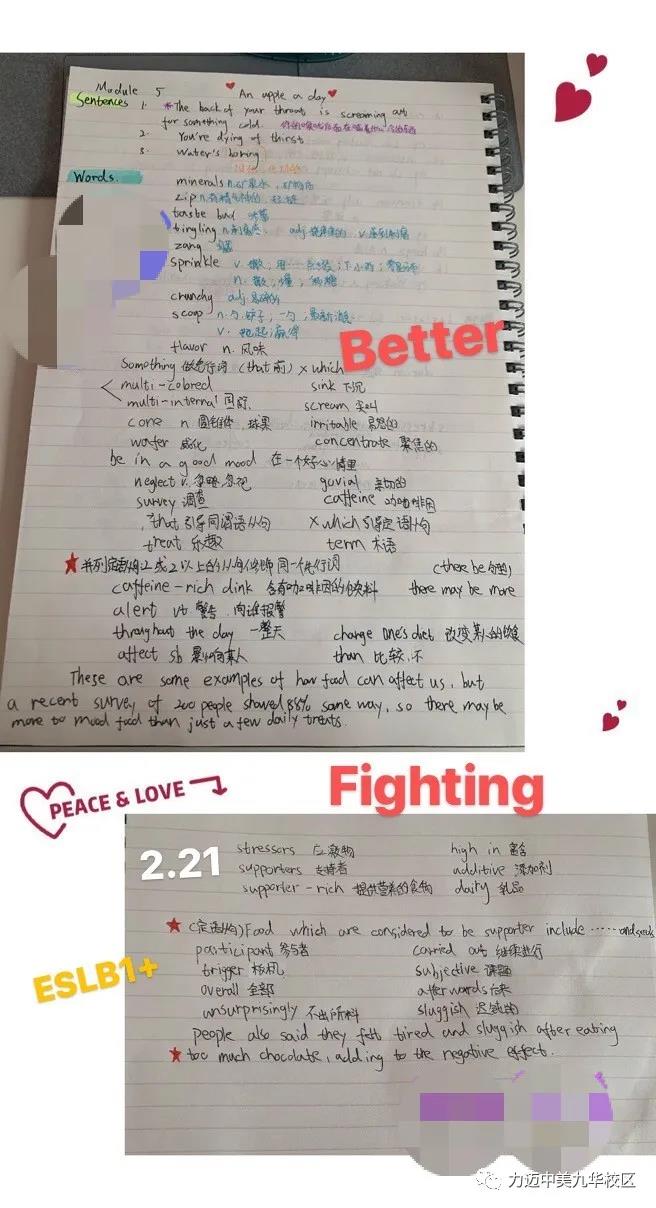 Module 5 An apple a day
Sentences 1. *The back of your throat is screaming out
for something cold.
2. You're dying of thirst
3. Water's boring
Words.
minerals n.矿泉水，矿物质
zip
taste bud 味蕾
tingling adj. v.
zang
sprinkle v. 撒；下小雨；
n.
crunchy adj.易碎的
scoop n.勺子，一勺；最新消息
v. 赢得
flavor n. 风味
Something 做先行词 (that前) × which
multi-colored sink 下沉
multi-internal scream 尖叫
cone n 圆锥体 球果 irritable 易怒的
wafer 威化 concentrate 聚焦的
be in a good mood 在一个好心情里
neglect v. 忽略 忽视 govial 亲切的
survey 调查 caffeine 咖啡因
,"that 引导同谓语从句 × which引导定语从句
treat 乐趣 term 术语
2或2以上的从句修饰同一个先行词 (there be句型)
caffeine-rich dink 含有咖啡因的饮料 there may be more
alert vt 警告 向谁报警
throughout the day 一整天 change one's diet 改变某人的饮食
affect sb 影响某人 than 比较,不
These are some examples of how food can affect us, but
a recent survey of 200 people showed 88% same way, so there may be
more to mood food than just a few daily treats.
Better
PEACE & LOVE
Fighting
2.21
stressors 应激物 high in 富含
supporters 支持者 additive 添加剂
supporter-rich 提供营养的食物 dairy 乳品
(定语从句) Food which are considered to be supporter include ······ and seeds
participant 参与者 carried out 继续进行
trigger 扳机 subjective 课题
overall 全部 afterwords 后来
unsurprisingly 不出所料 sluggish 迟钝的
people also said they felt tired and sluggish after eating
too much chocolate, adding to the negative effect.
ESLB1+
力迈中美九华校区